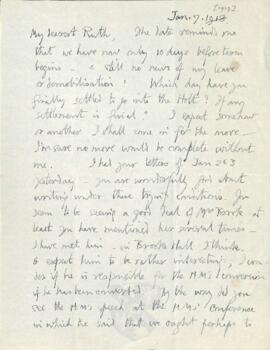 [1919]
Jan. 7. 1918
My dearest Ruth, The date reminds me
that we have now only 10 days before term
begins – & still no news of my leave
or demobilisation! Which day have you
finally settled to go into the Holt? If any
settlement is final? I expect somehow
or another I shall come in for the move –
I'm sure no move would be complete without
me. I had your letters of Jan 2 & 3
yesterday – you are wonderfully good about
writing under these trying conditions. You
seem to be seeing a good deal of Mr Brook at
least you have mentioned her several times –
I have met him – in Brooke Hall I think.
& expect him to be rather interesting; I won-
der if he is responsible for the H.M.'s conversion
if he has been converted. By the way did you
see the H.M.'s speech at the H.M.s' Conference
in which he said that we ought perhaps to